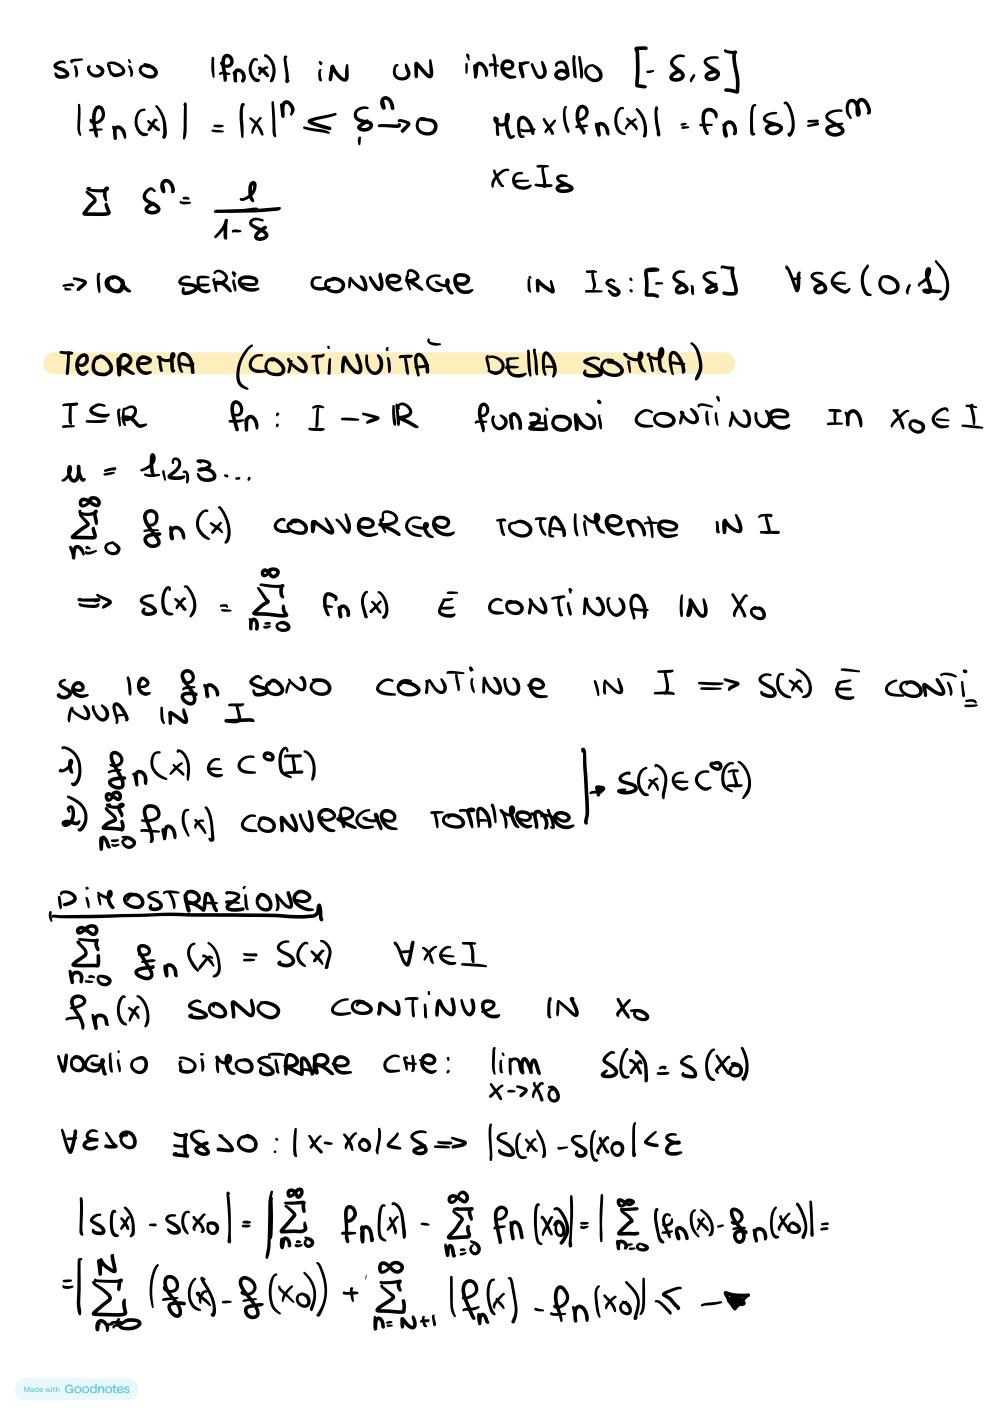 STUDIO |fn(x)| IN UN intervallo [-δ,δ]
|fn(x)| = |x|^n ≤ δ^n → 0 MAX|fn(x)| = fn(δ) = δ^m
x∈Iδ
Σ δ^n = 1/(1-δ)
=> la SERIE CONVERGE IN Iδ: [-δ,δ] ∀δ∈(0,1)
TEOREMA (CONTINUITÀ DELLA SOMMA)
I⊆ℝ fn: I -> ℝ funzioni CONTINUE IN x₀∈I
n = 1,2,3...
Σ_{n=0}^∞ fn(x) CONVERGE TOTALMENTE IN I
=> S(x) = Σ_{n=0}^∞ fn(x) È CONTINUA IN X₀
Se le fn SONO CONTINUE IN I => S(x) È CONTI=
NUA IN I
1) fn(x) ∈ C⁰(I)
→ S(x)∈C⁰(I)
2) Σ_{n=0}^∞ fn(x) CONVERGE TOTALMENTE
DIMOSTRAZIONE
Σ_{n=0}^∞ fn(x) = S(x) ∀x∈I
fn(x) SONO CONTINUE IN X₀
VOGLIO DIMOSTRARE CHE: lim_{x->x₀} S(x) = S(x₀)
∀ε>0 ∃δ>0 : |x-x₀|<δ => |S(x)-S(x₀|<ε
|S(x) - S(x₀| = |Σ_{n=0}^∞ fn(x) - Σ_{n=0}^∞ fn(x₀)| = |Σ_{n=0}^∞ (fn(x)-fn(x₀)| =
=|Σ_{n=0}^N (f(x)-f(x₀)) + Σ_{n=N+1}^∞ |fn(x) - fn(x₀)| ≤ →
Made with Goodnotes